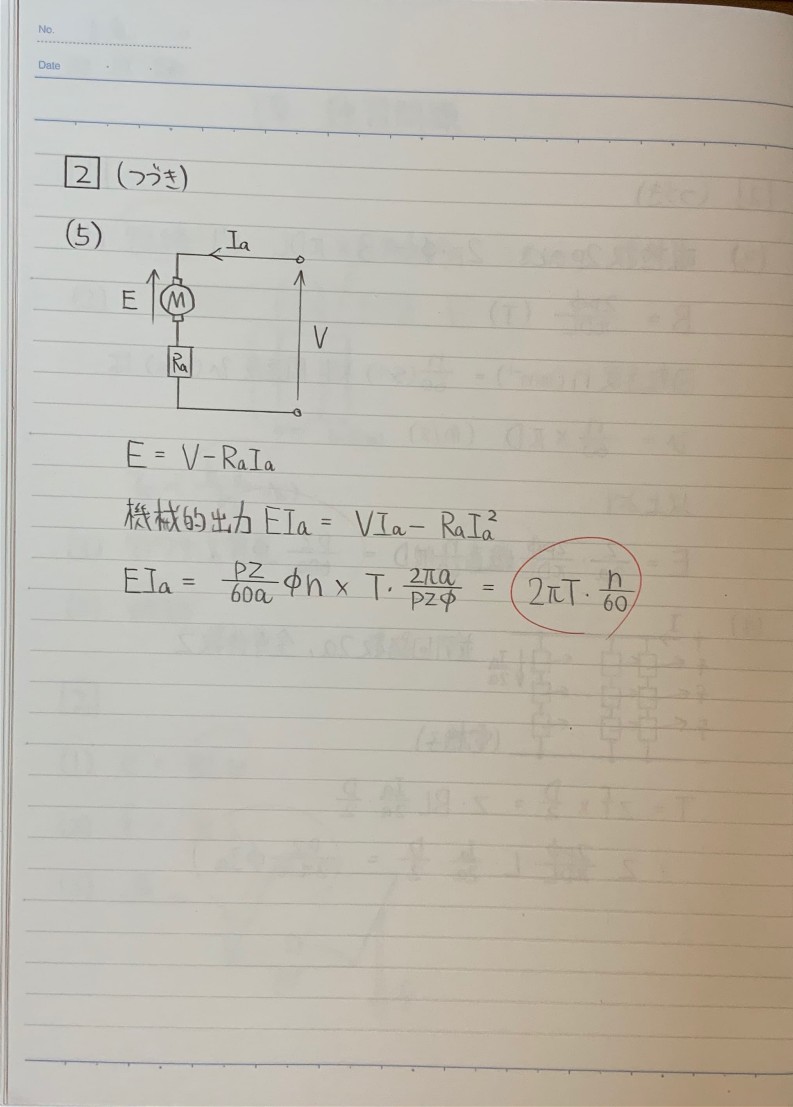 No.
Date
2 (つづき)
(5)
Ia
E
M
V
Ra
E = V - RaIa
機械的出力 EIa = VIa - RaIa²
EIa = PZ/60a φn × T · 2πa/PZφ = 2πT · n/60